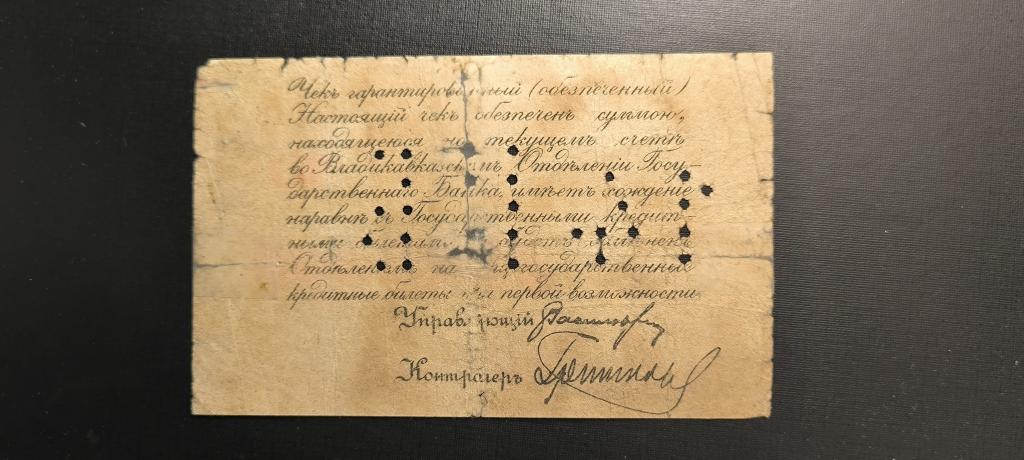 Чекъ гарантированный (обезпеченный)
Настоящій чекъ обезпеченъ суммою,
находящеюся на текущемъ счетѣ
во Владикавказскомъ Отдѣленіи Госу-
дарственнаго Банка, имѣетъ хожденіе
наравнѣ съ Государственными кредит-
ными билетами
Отдѣленіемъ на государственные
кредитные билеты при первой возможности.
Управляющій
Контролеръ